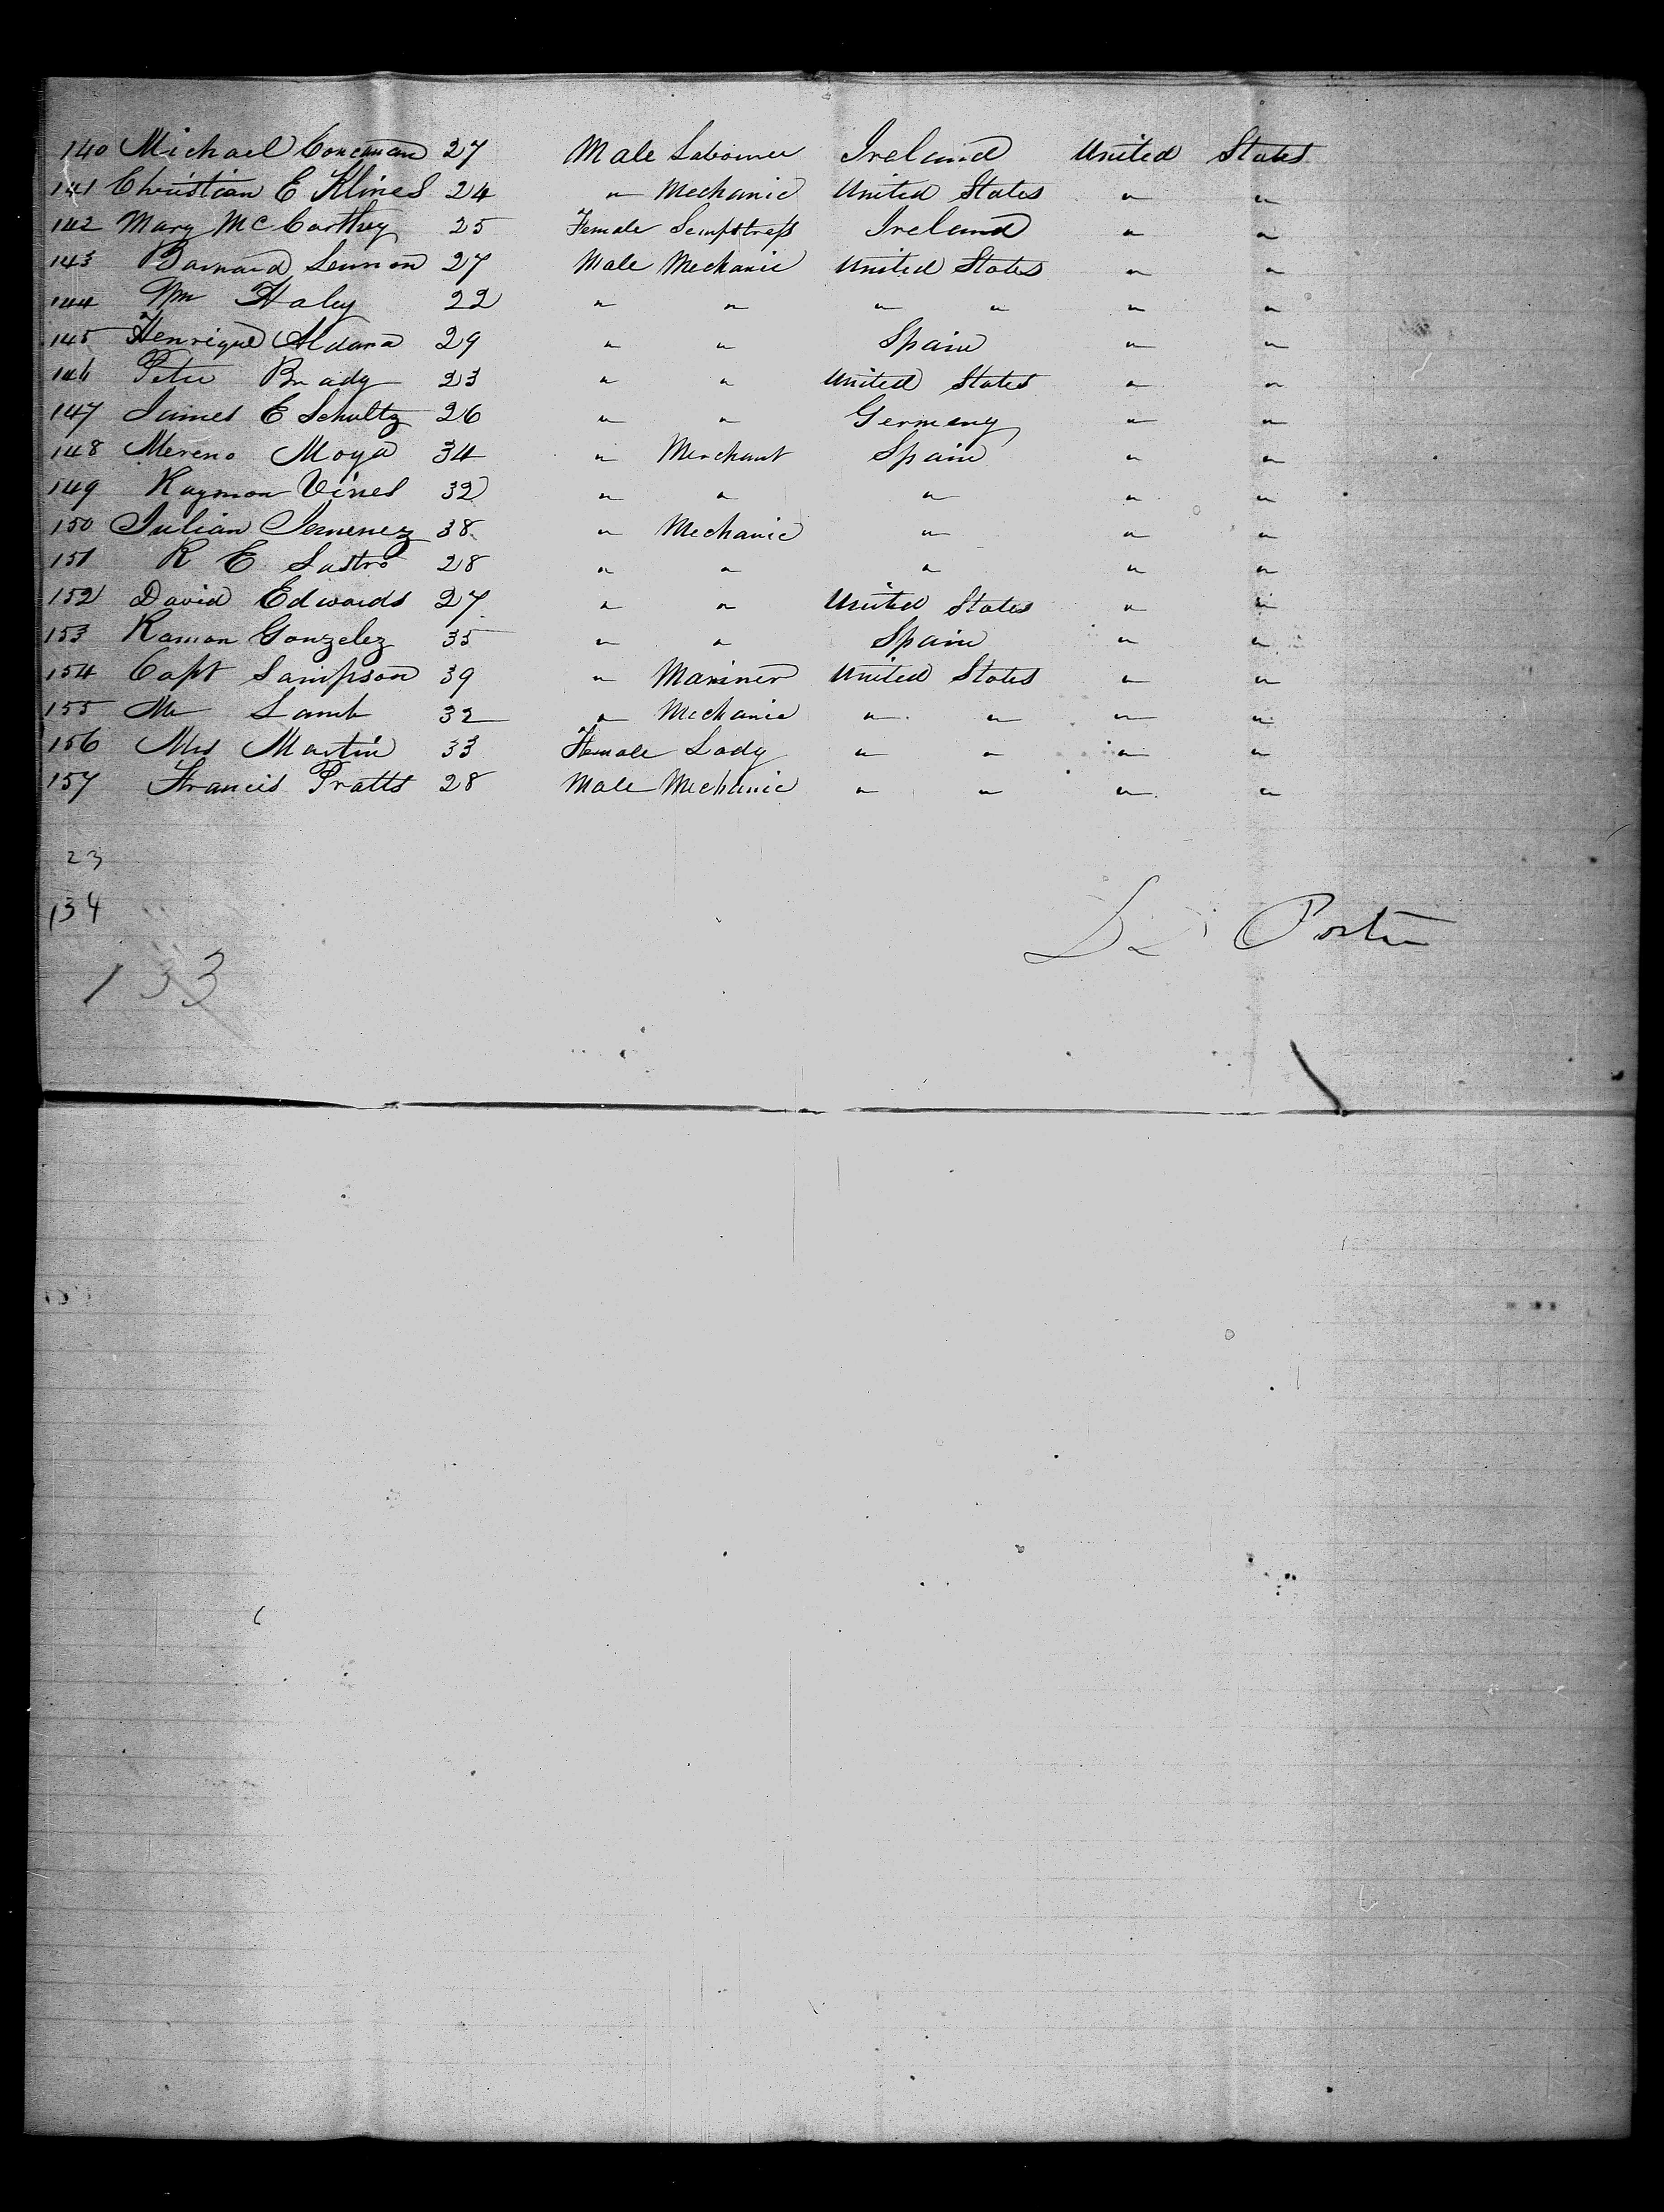 140 Michael Concannan 27 Male Labourer Ireland United States
141 Christian E Klines 24 " Mechanic United States " "
142 Mary McCarthey 25 Female Sempstress Ireland " "
143 Barnard Lennon 27 Male Mechanic United States " "
144 Wm Haley 22 " " " " " "
145 Henrique Aldana 29 " " Spain " "
146 Peter Brady 23 " " United States " "
147 James E Schultz 26 " " Germeny " "
148 Mereno Moya 34 " Merchant Spain " "
149 Raymon Vines 32 " " " " "
150 Julian Jemenez 38 " Mechanic " " "
151 R E Sastro 28 " " " " "
152 David Edwards 27 " " United States " "
153 Ramon Gonzelez 35 " " Spain " "
154 Capt Sampson 39 " Mariner United States " "
155 Mr Lamb 32 " Mechanic " " " "
156 Mrs Martin 33 Female Lady " " " "
157 Francis Pratts 28 Male Mechanic " " " "
23
134
Porter
133